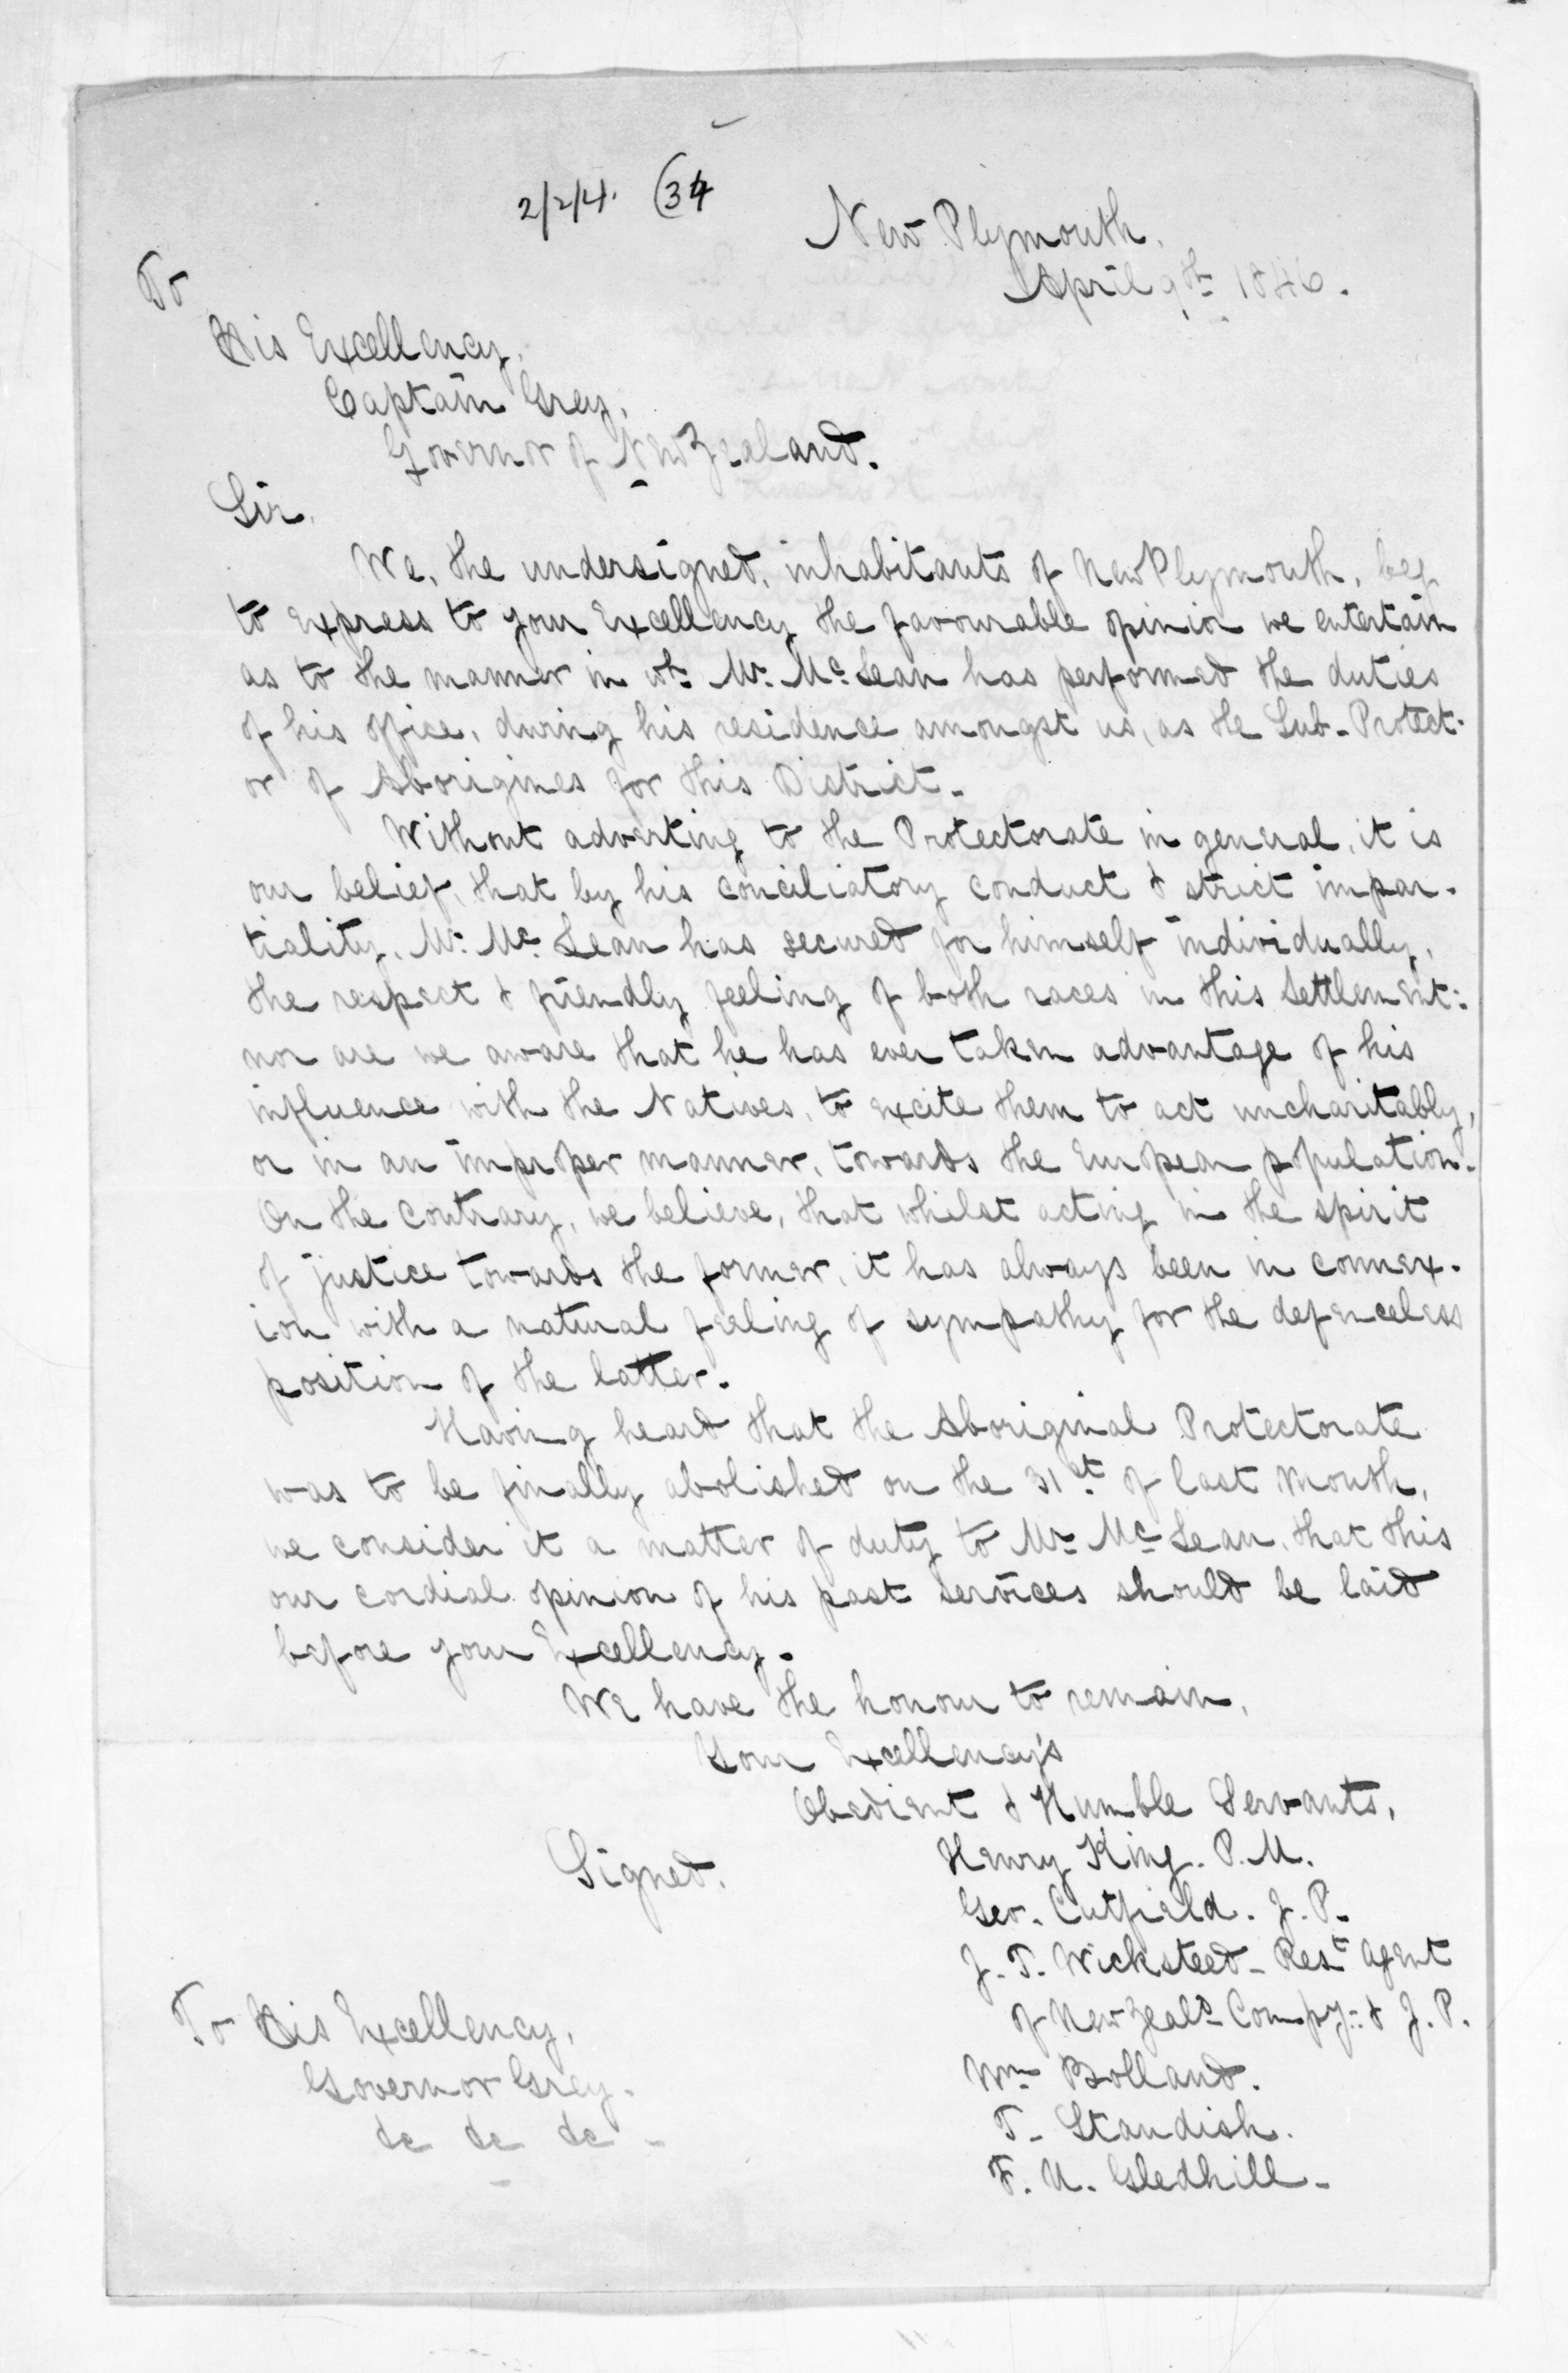 2/2/4. (34
New Plymouth,
April 9th 1846.
To
His Excellency,
Captain Grey,
Governor of New Zealand.
Sir,
We, the undersigned, inhabitants of New Plymouth, beg
to express to your Excellency the favourable opinion we entertain
as to the manner in wh: Mr. Mc. Lean has performed the duties
of his office, during his residence amongst us, as the Sub-Protect-
or of Aborigines for this District.
Without adverting to the Protectorate in general, it is
our belief, that by his conciliatory conduct & strict impar-
tiality, Mr. Mc. Lean has secured for himself individually,
the respect & friendly feeling of both races in this Settlement:
nor are we aware that he has ever taken advantage of his
influence with the Natives, to excite them to act uncharitably,
or in an improper manner, towards the European population.
On the contrary, we believe, that whilst acting in the spirit
of justice towards the former, it has always been in connex-
ion with a natural feeling of sympathy for the defenceless
position of the latter.
Having heard that the Aboriginal Protectorate
was to be finally abolished on the 31st. of last Month,
we consider it a matter of duty to Mr. Mc Lean, that this
our cordial opinion of his past services should be laid
before your Excellency.
We have the honour to remain,
Your Excellency's
Obedient & Humble Servants,
Signed.
Henry King. P.M.
Geo. Cutfield. J.P.
J.T. Wicksteed - Rest. Agent
of New Zeald. Compy: & J.P.
Wm Bolland.
T. Standish.
F. U. Gledhill.
To His Excellency,
Governor Grey.
&c &c &c -